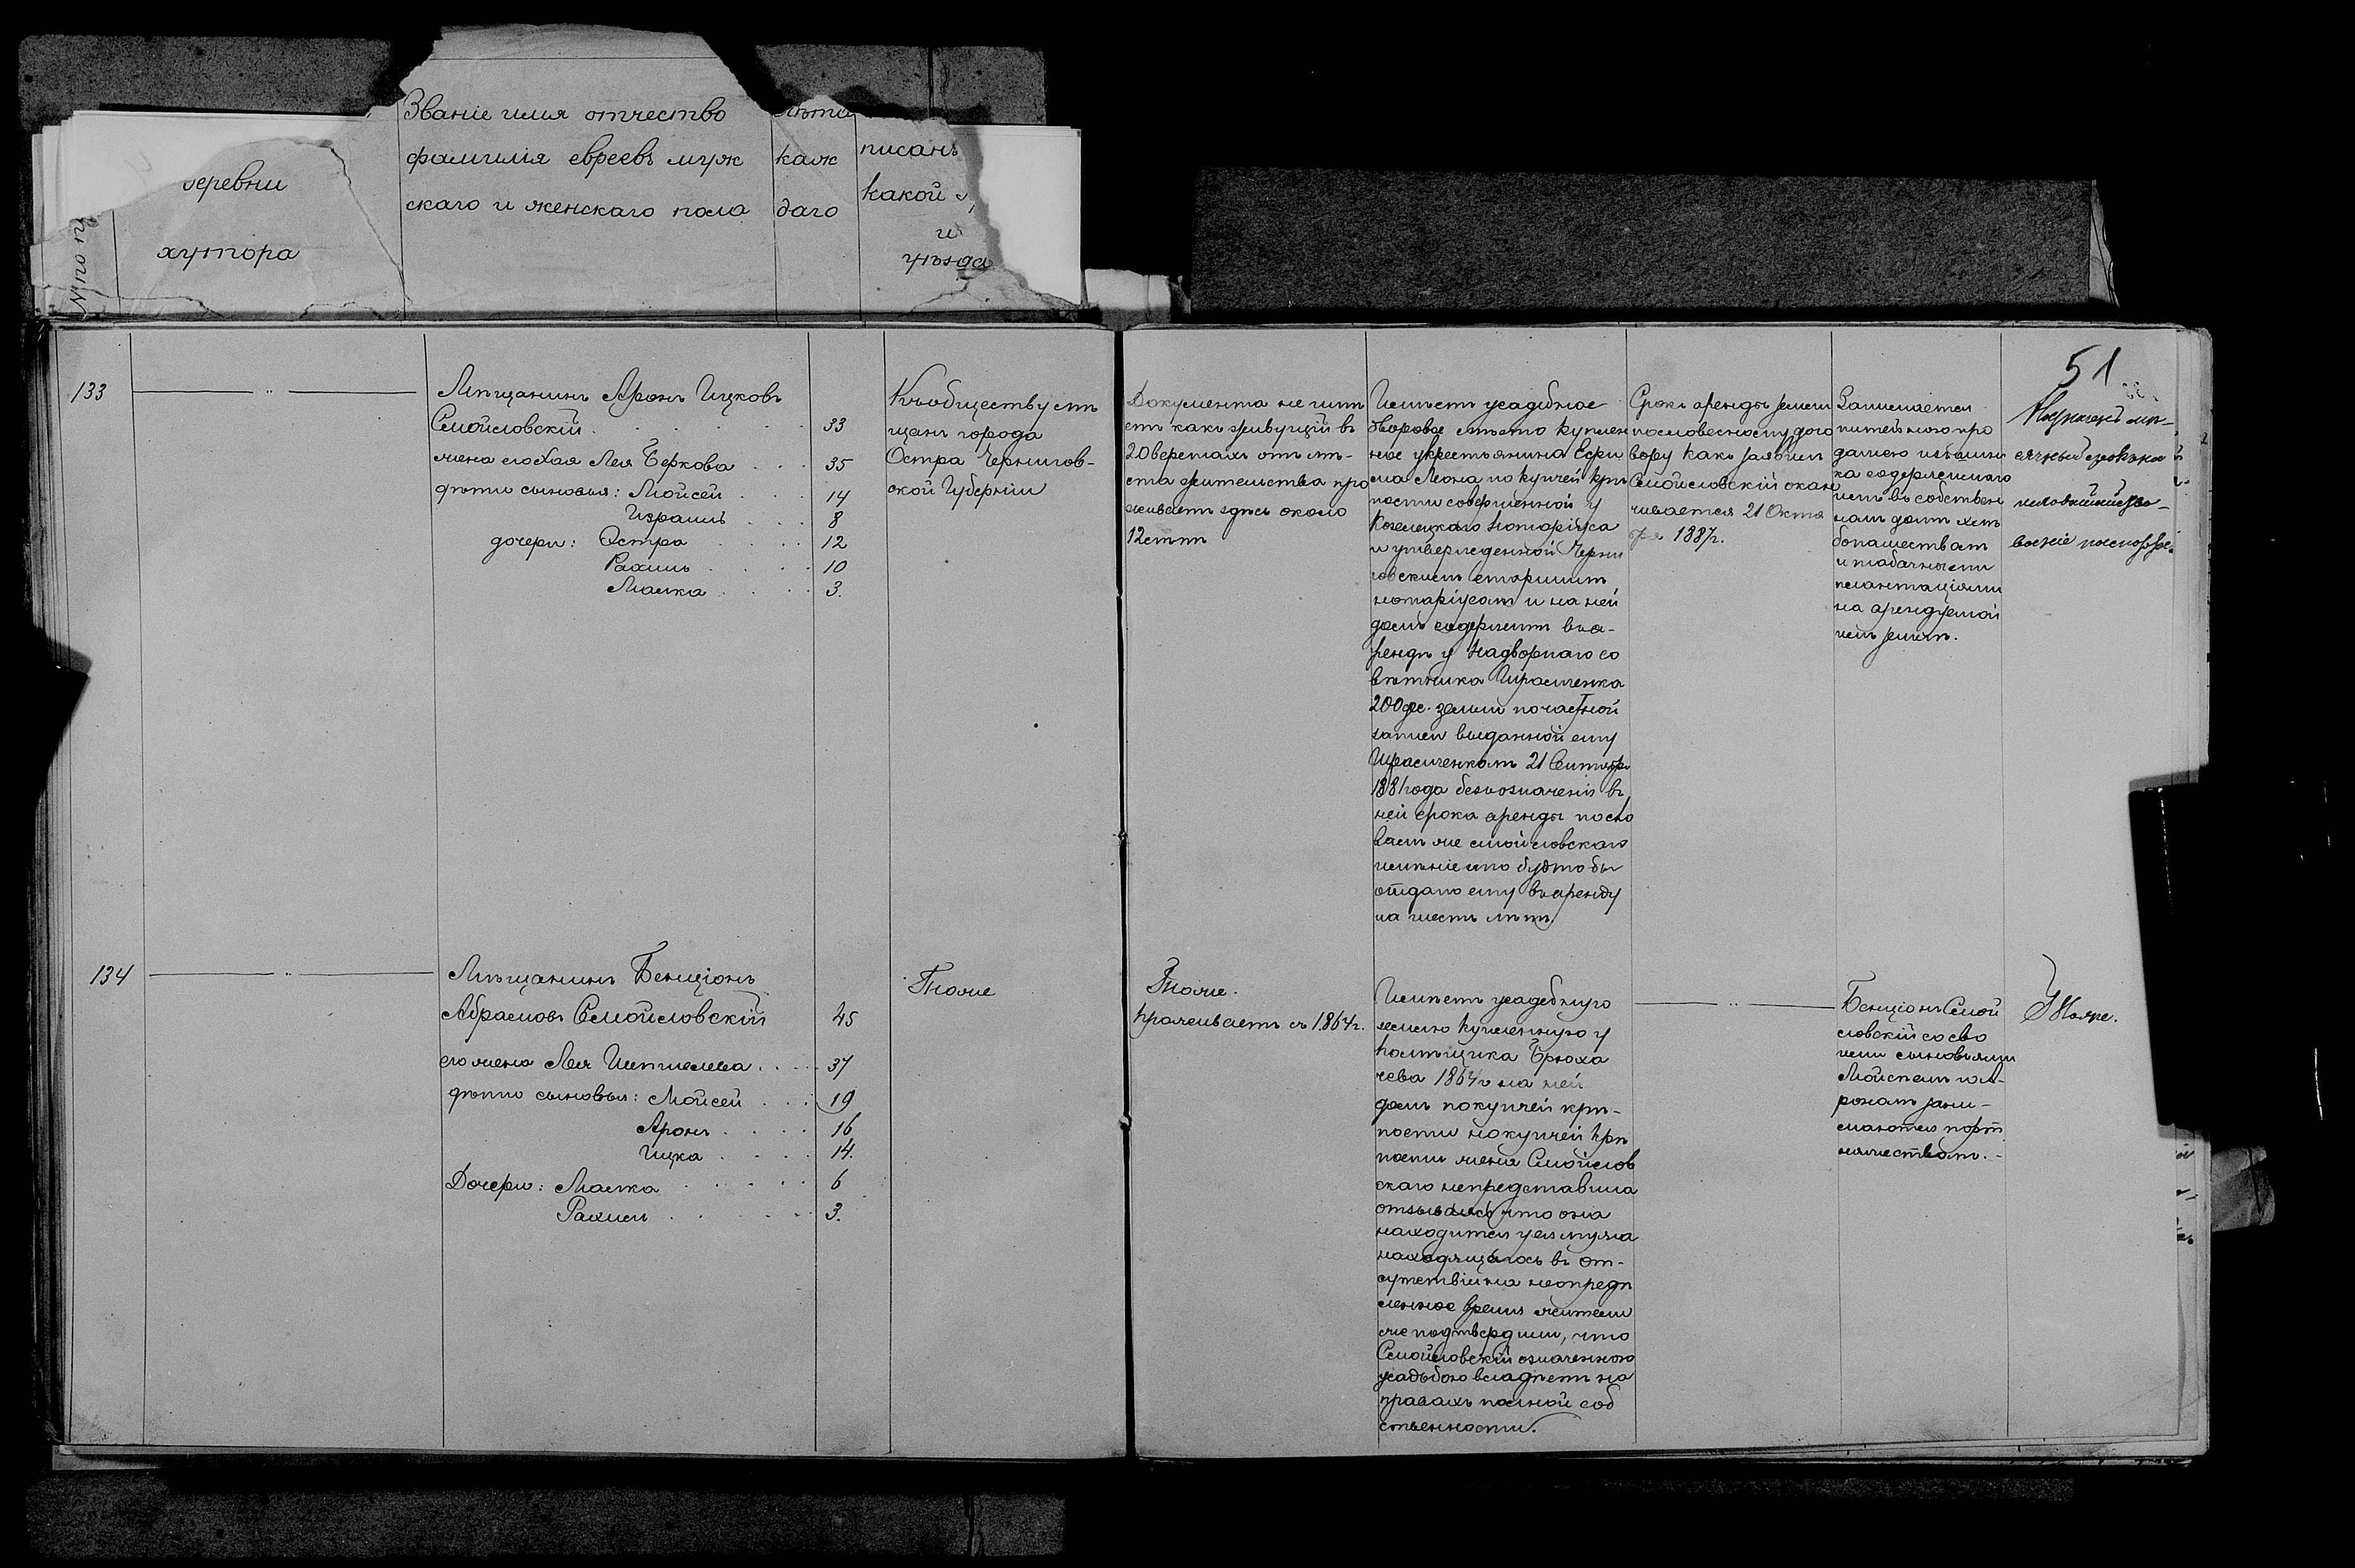 Званіе имя отчество
фамилія евреевъ муж
скаго и женскаго пола
каж
даго
писанъ
какой
и
уѣзда
деревни
хутора
№ по п
51
133
Мѣщанинъ Аронъ Ицковъ
Смойловскій 33
жена его Хая Лея Беркова 35
дѣти сыновья: Мойсей 14
Израиль 8
дочери: Эстра 12
Рахиль 10
Малка 3.
Къ обществу мѣ
щанъ города
Остра Чернигов-
ской Губерніи
Документа не имѣ
етъ какъ живущій въ
20 верстахъ отъ мѣ-
ста жительства про
живаетъ здѣсь около
12 лѣтъ
Имѣетъ усадебное
дворовое мѣсто куплен
ное у крестьянина Ефи
ма Леона по купчей крѣ
пости совершенной у
Козелецкаго Нотаріуса
и утвержденной Черни
говскимъ старшимъ
нотаріусомъ и на ней
домъ содержитъ въ а-
рендѣ у Надворнаго со
вѣтника Ирасиченка
200 дес. земли по частной
записи выданной ему
Ирасиченкомъ 21 Сентябр
1881 года безъ означенія въ
ней срока аренды по сло
вамъ же Смойловскаго
имѣніе это будто бы
отдано ему въ аренду
на шесть лѣтъ
Срокъ аренды земли
по словесному дого
вору какъ заявилъ
Смойловскій окан
чивается 21 Октя
бря 1887 г.
Занимается
питейною про
дажею изъ шин
ка содержимаго
имъ въ собствен
номъ домѣ хлѣ
бопашествомъ
и табачными
плантаціями
на арендуемой
имъ землѣ.
134
Мѣщанинъ Бенціонъ
Абрамовъ Смойловскій 45
его жена Лея Шмуилева 37
дѣти сыновья: Мойсей 19
Аронъ 16
Ицка 14.
Дочери: Малка 6
Рахиль 3.
Тоже
Тоже.
проживаетъ съ 1864 г.
Имѣетъ усадебную
землю купленную у
помѣщика Брюха
чева 1864 г на ней
домъ по купчей крѣ-
пости но купчей крѣ
пости жена Смойлов
скаго не представила
отзываясь что она
находится у ея мужа
находящагося въ от-
сутствіи на неопредѣ
ленное время жители
же подтвердили, что
Смойловскій означенною
усадьбою владѣетъ на
правахъ полной соб
ственности.
Бенціонъ Смой
ловскій со сво
ими сыновьями
Мойсеемъ и А-
рономъ зани-
маются порт
няжествомъ.
Тоже.